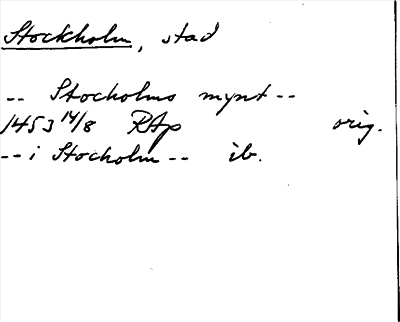 Stockholm, stad
-- Stocholms mynt --
1453 14/8 RAp orig.
-- i Stocholm -- ib.